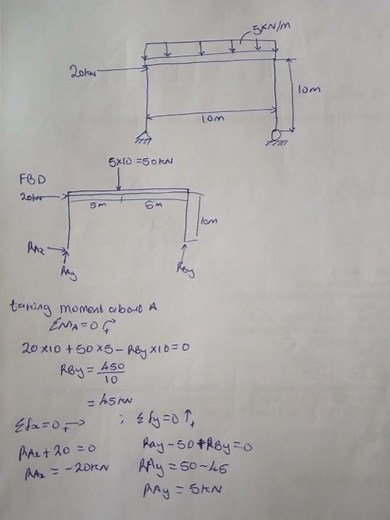 5KN/m
20KN
10m
10m
5x10=50KN
FBD
20KN
5m 5m
10m
RAx
RAy
RBy
taking moment about A
ΣMA=0
20x10+50x5-RByx10=0
RBy = 450/10
= 45KN
Σfx=0 → ; Σfy=0 ↑+
RAx+20=0 RAy-50+RBy=0
RAx = -20KN RAy = 50-45
RAy = 5KN